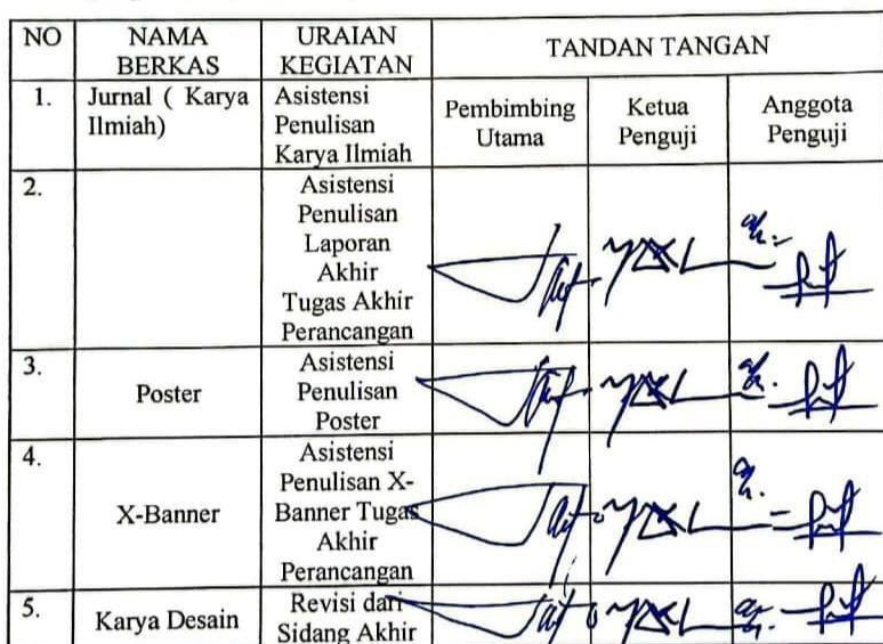 NO NAMA BERKAS URAIAN KEGIATAN TANDAN TANGAN
1. Jurnal ( Karya Ilmiah) Asistensi Penulisan Karya Ilmiah Pembimbing Utama Ketua Penguji Anggota Penguji
2. Asistensi Penulisan Laporan Akhir Tugas Akhir Perancangan
3. Poster Asistensi Penulisan Poster
4. X-Banner Asistensi Penulisan X-Banner Tugas Akhir Perancangan
5. Karya Desain Revisi dari Sidang Akhir